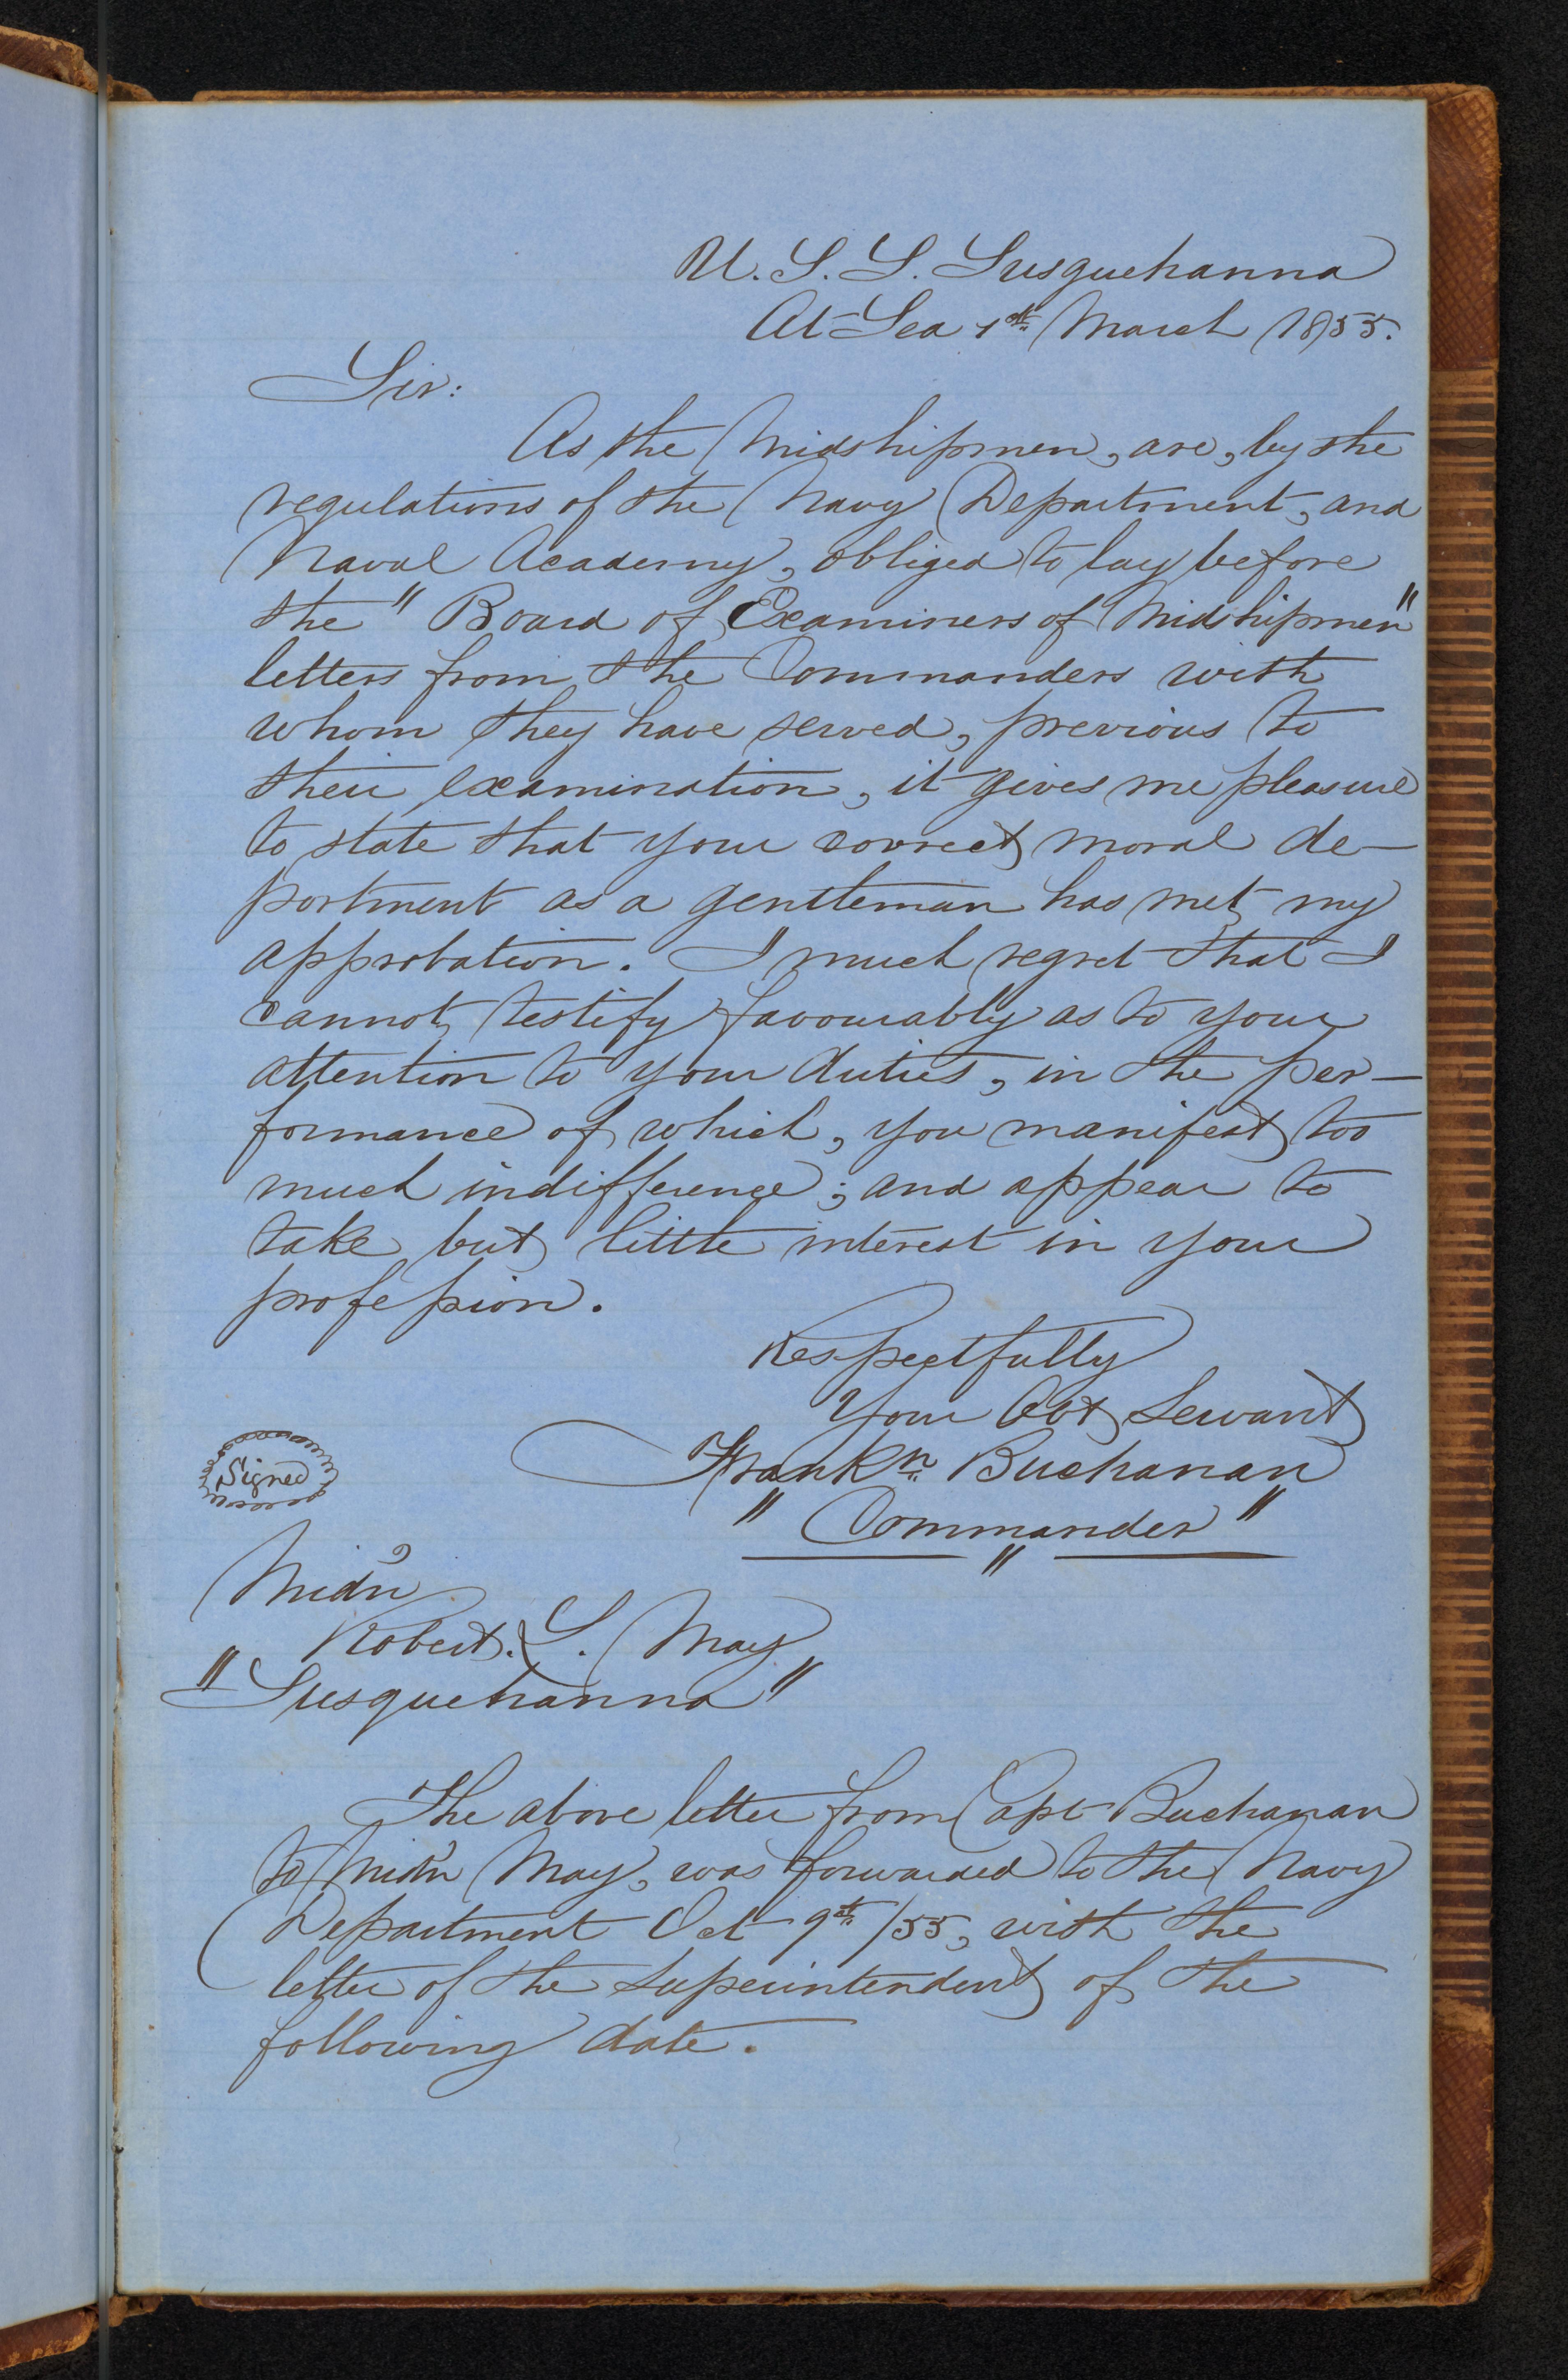 U. S. S. Susquehanna
At Sea 1st March 1855.
Sir:
As the Midshipmen, are, by the
regulations of the Navy Department, and
Naval Academy, obliged to lay before
the "Board of Examiners of Midshipmen"
letters from the Commanders with
whom they have served, previous to
their examination, it gives me pleasure
to state that your correct moral de-
portment as a gentleman has met my
approbation. I much regret that I
cannot testify favourably as to your
attention to your duties, in the per-
formance of which, you manifest too
much indifference; and appear to
take but little interest in your
profession.
Respectfully
Your Obt Servant
Signed
Frankn Buchanan
"Commander"
"
Midn
Robert. L. May
"Susquehanna"
The above letter from Capt Buchanan
to Midn May, was forwarded to the Navy
Department Oct 9th /55, with the
letter of the Superintendent of the
following date.